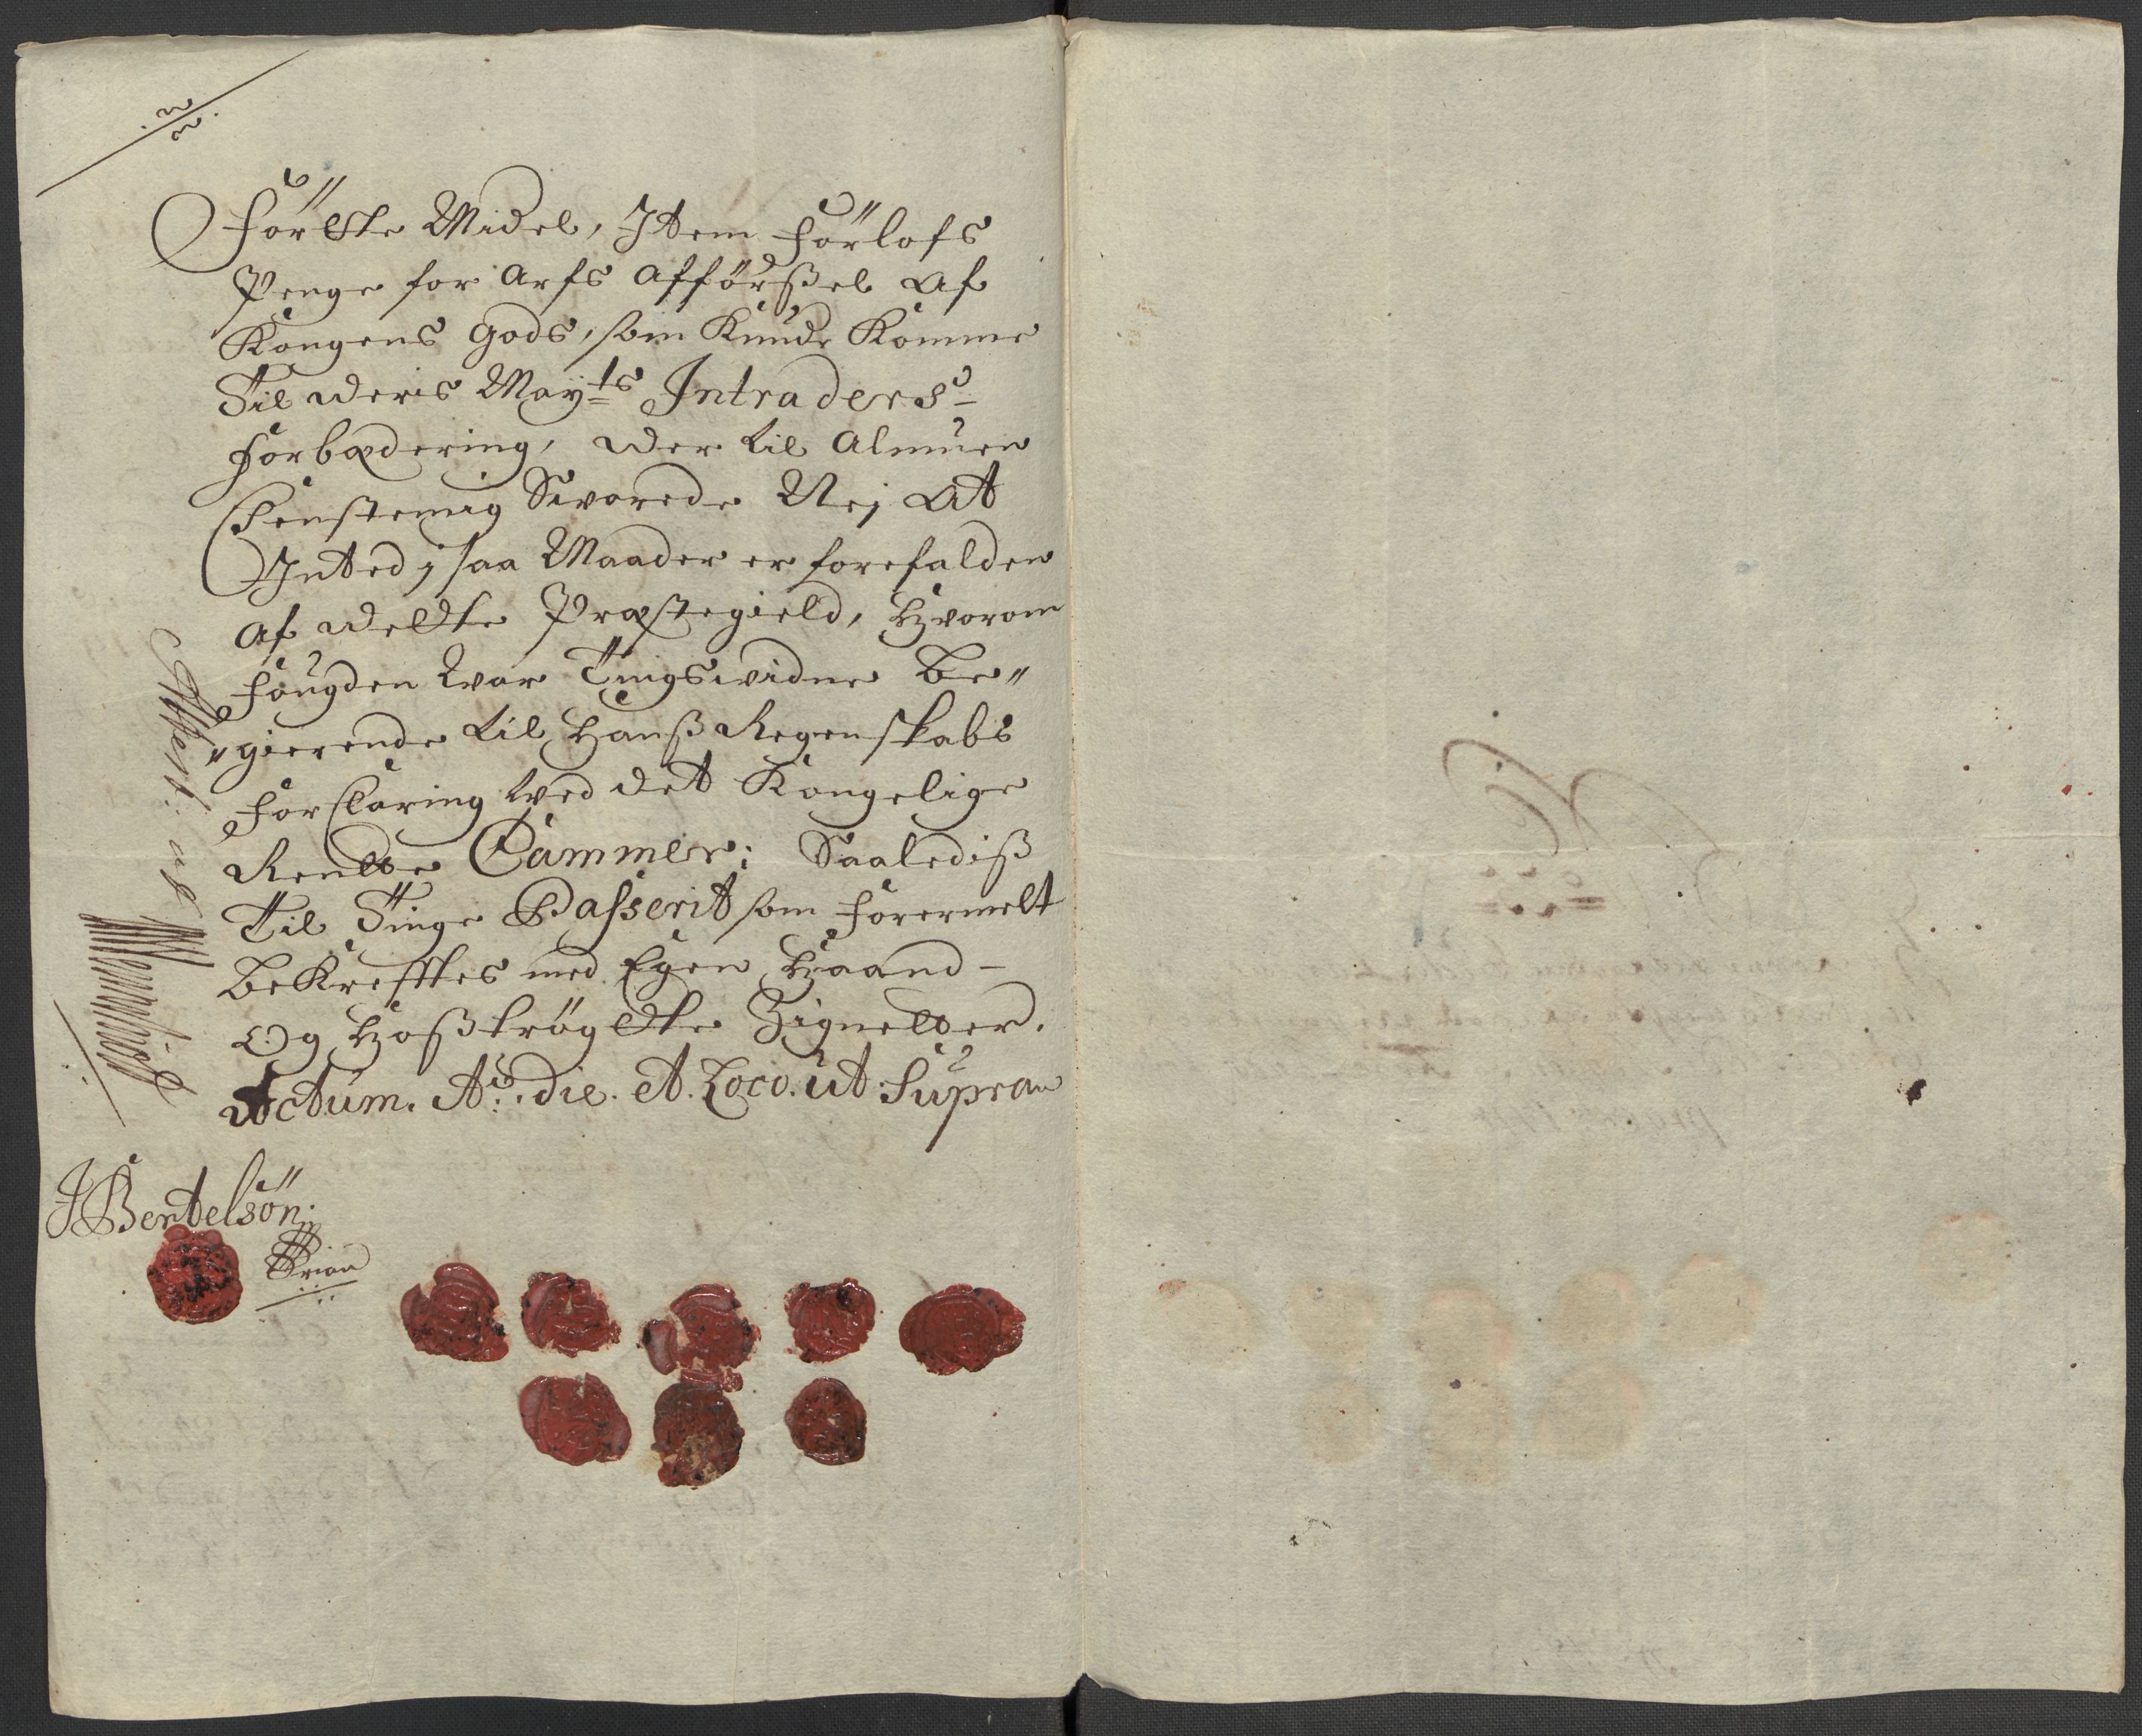 Förßte Midel, Item Förlofs
Penge for Arfs Afförßel Af
Kongens Gods, som Kunde Komme
Til deris May:ts Intraders
Forbædering, der til Almuen
Eenstemig Svarede Nej At
Inted j saa Maader er forefalden
Af dette Præstegield, Hvorom
Fougden var Tingsvidne Be"
"gierende til Hanß Regenskabs
Forklaring ved det Kongelige
Rentte Cammer; Saalediß
Til Tinge Passerit som forermelt
Bekrefftes med Egen Haand-
Og Hoßtrögtte Zignetter.
Actum. Ao: die. et. Loco. ut Supra
JBentelsön: